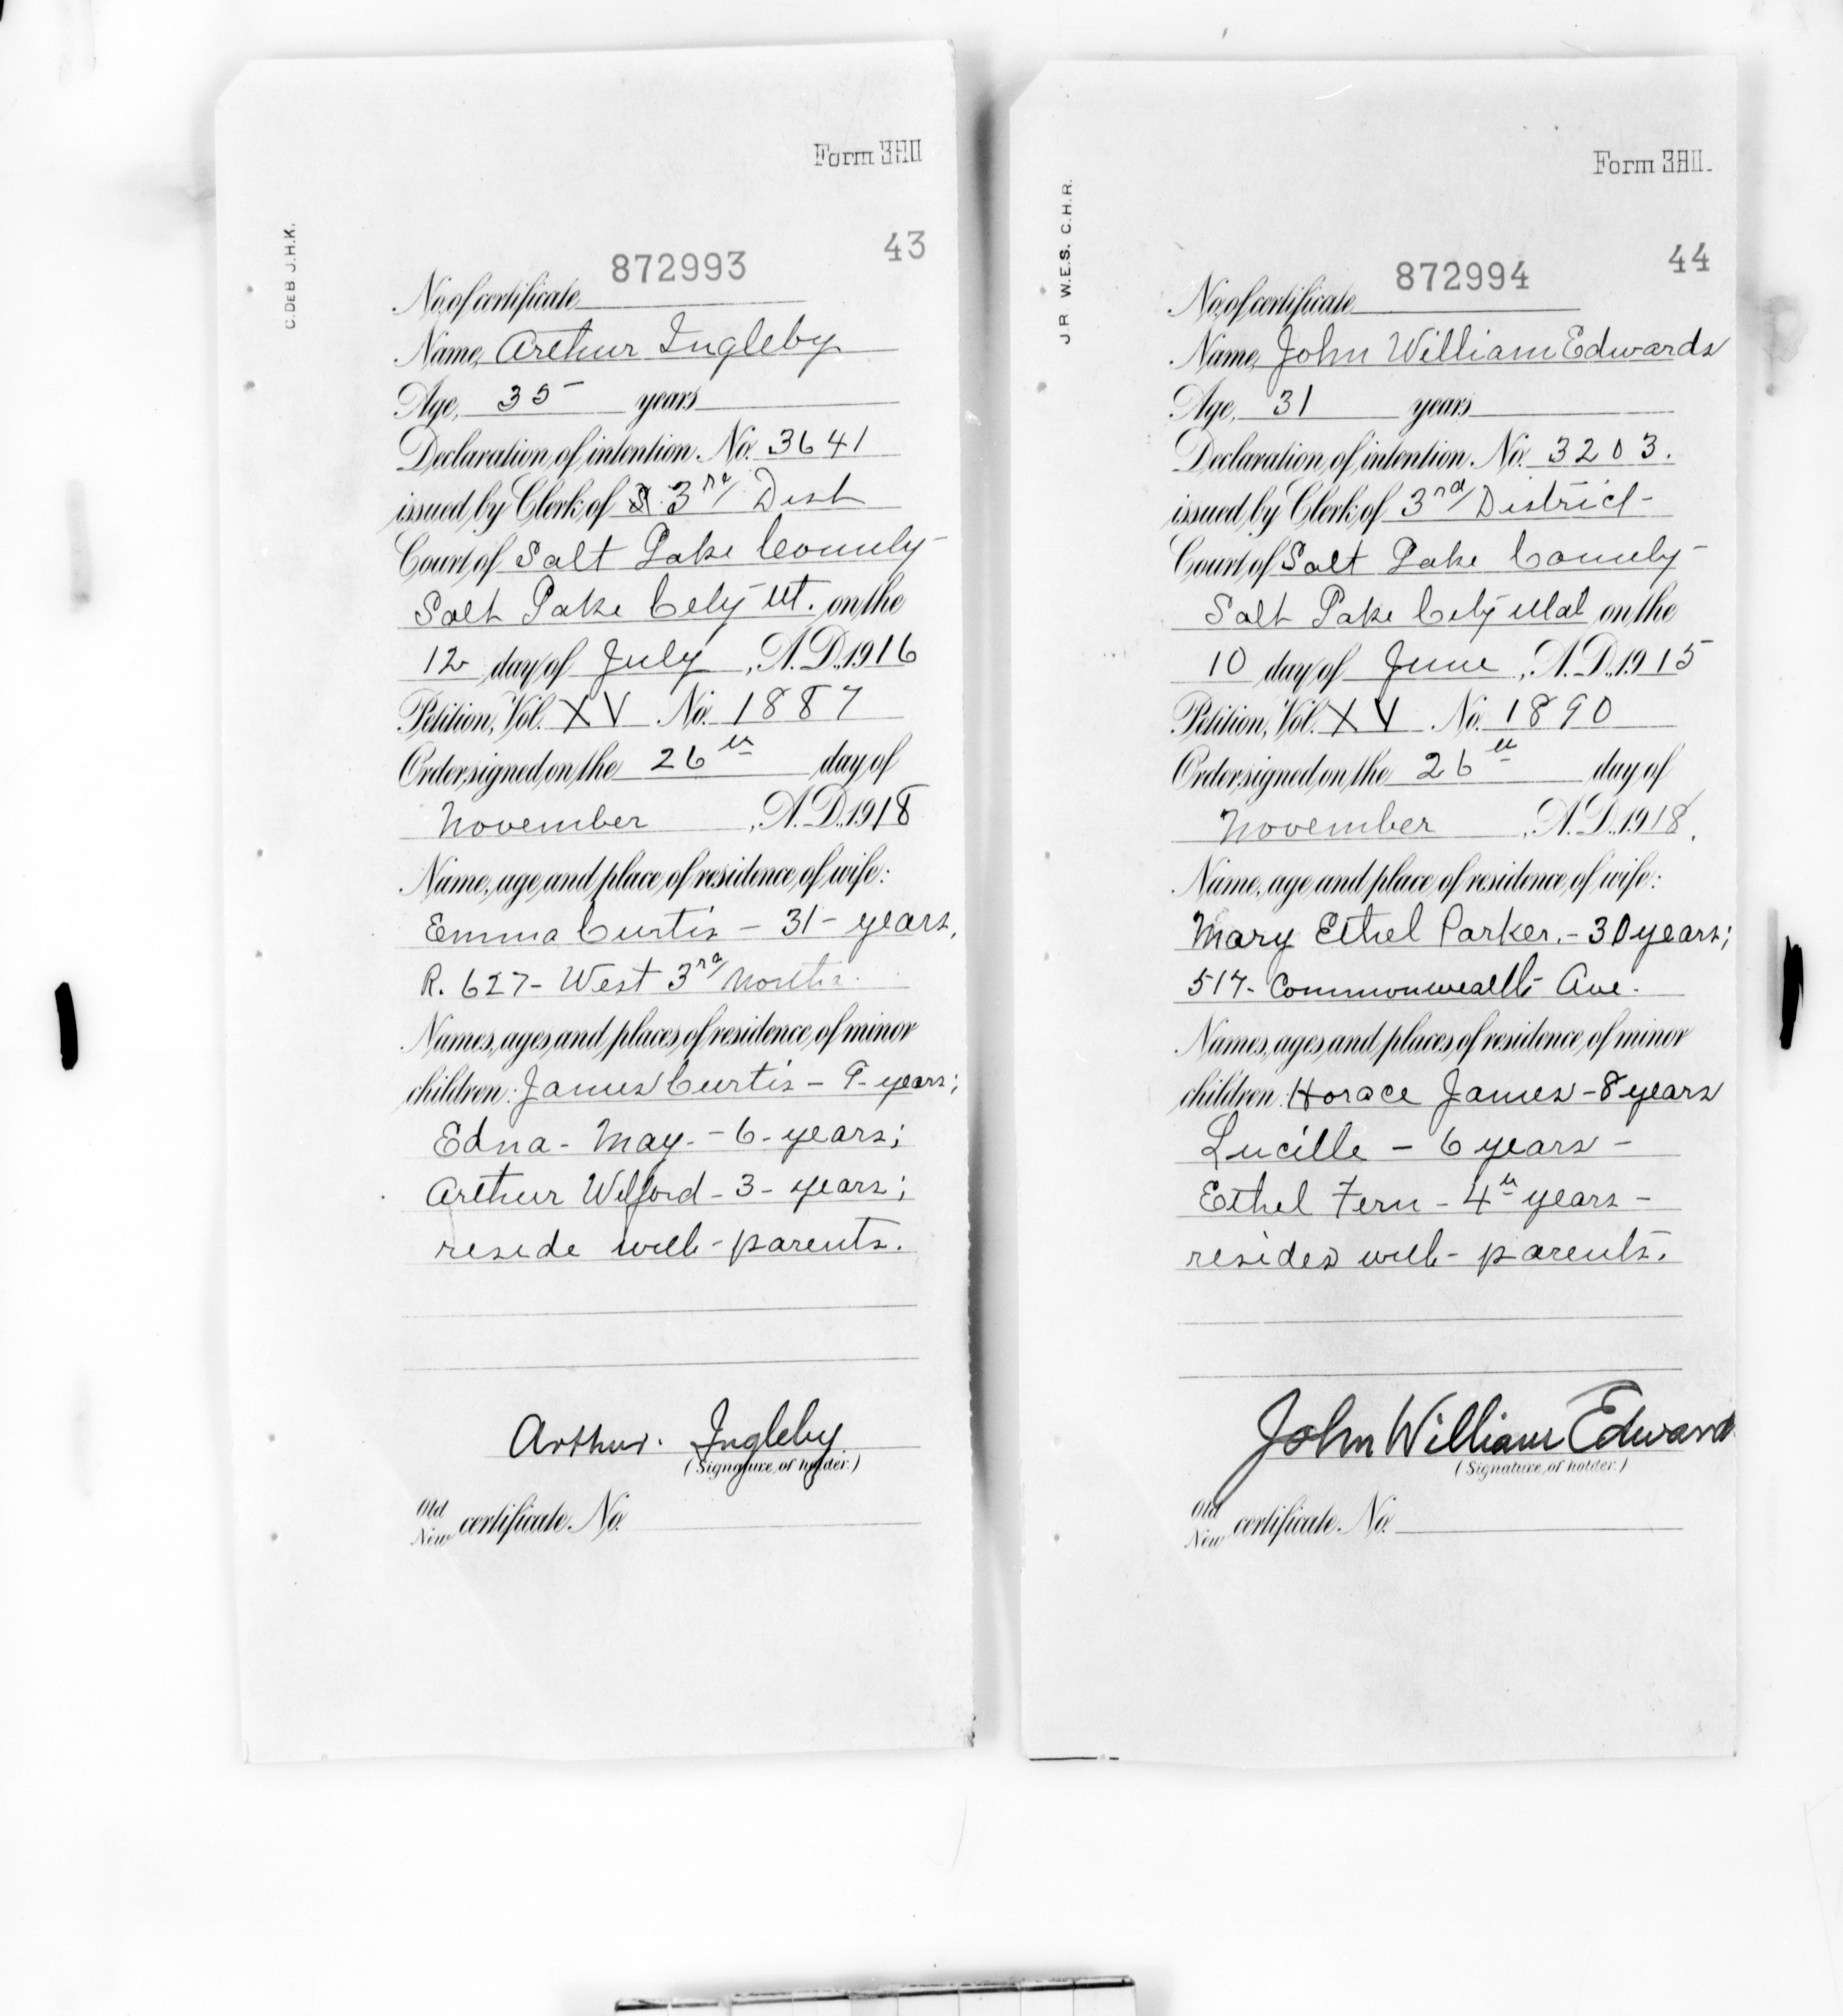 Form
C.DEB J.H.K.
43
872993
No. of certificate
Name, Arthur Ingleby
Age, 35 years
Declaration of intention No. 3641
issued by Clerk of 3rd Dist
Court of Salt Lake County
Salt Lake City Ut. on the
12 day of July, A.D. 1916
Petition, Vol. XV No. 1887
Order signed on the 26th day of
November, A.D. 1918
Name, age and place of residence of wife:
Emma Curtis - 31 - years,
R. 627 - West 3rd North.
Names, ages and places of residence of minor
children: James Curtis - 9 - years;
Edna - May - 6 - years;
Arthur Wilford - 3 - years;
reside with - parents.
Arthur. Ingleby
(Signature of holder.)
Old
New certificate No.
Form
J.R W.E.S. C.H.R.
44
872994
No. of certificate
Name, John William Edwards
Age, 31 years
Declaration of intention No. 3203.
issued by Clerk of 3rd District
Court of Salt Lake County
Salt Lake City Utah on the
10 day of June, A.D. 1915
Petition, Vol. XV No. 1890
Order signed on the 26th day of
November, A.D. 1918.
Name, age and place of residence of wife:
Mary Ethel Parker. - 30 years;
517 - Commonwealth Ave.
Names, ages and places of residence of minor
children: Horace James - 8 years
Lucille - 6 years -
Ethel Fern - 4th years -
resides with - parents.
John William Edward
(Signature of holder.)
Old
New certificate No.